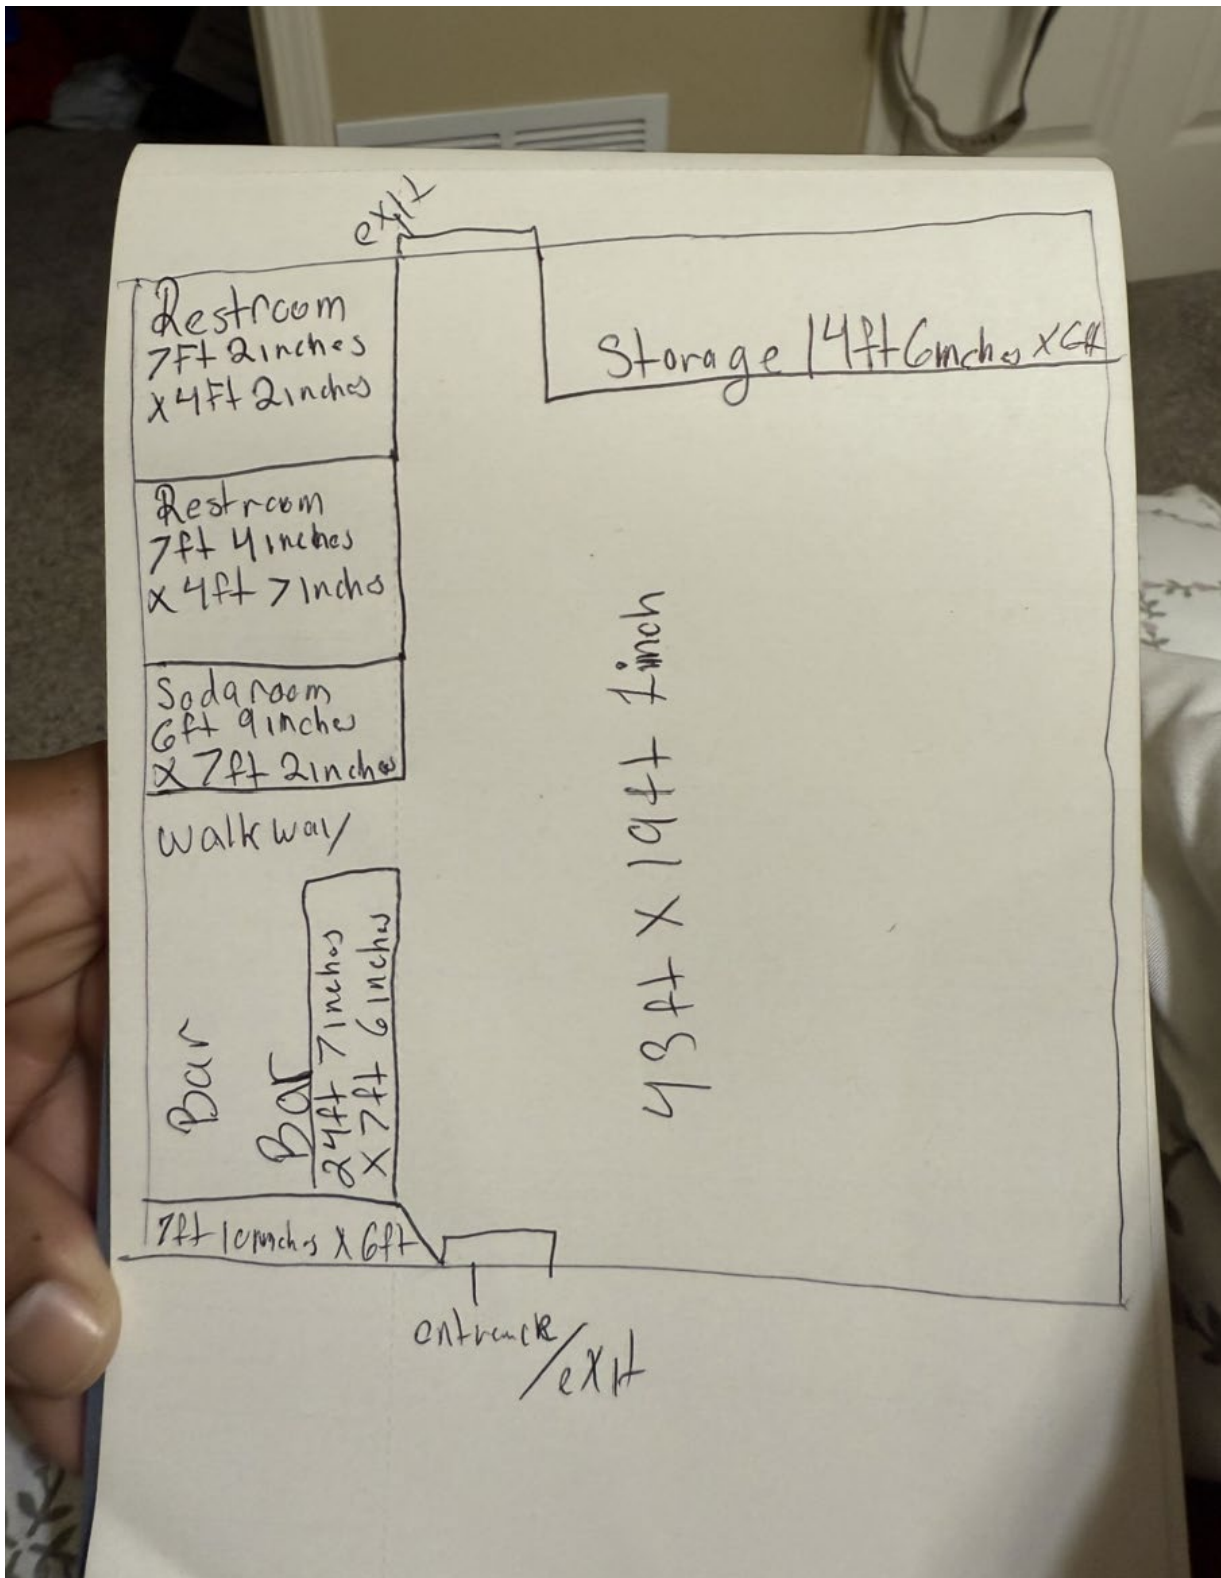 exit
Restroom
7Ft 2inches
x 4Ft 2inches
Storage 14ft 6inches x 6ft
Restroom
7ft 4inches
x 4ft 7inches
Sodaroom
6ft 9inches
x 7ft 2inches
walkway
43ft x 19ft 1inch
Bar
Bar
24ft 7inches
x 7ft 6inches
7ft 10inches x 6ft
entrance
/exit